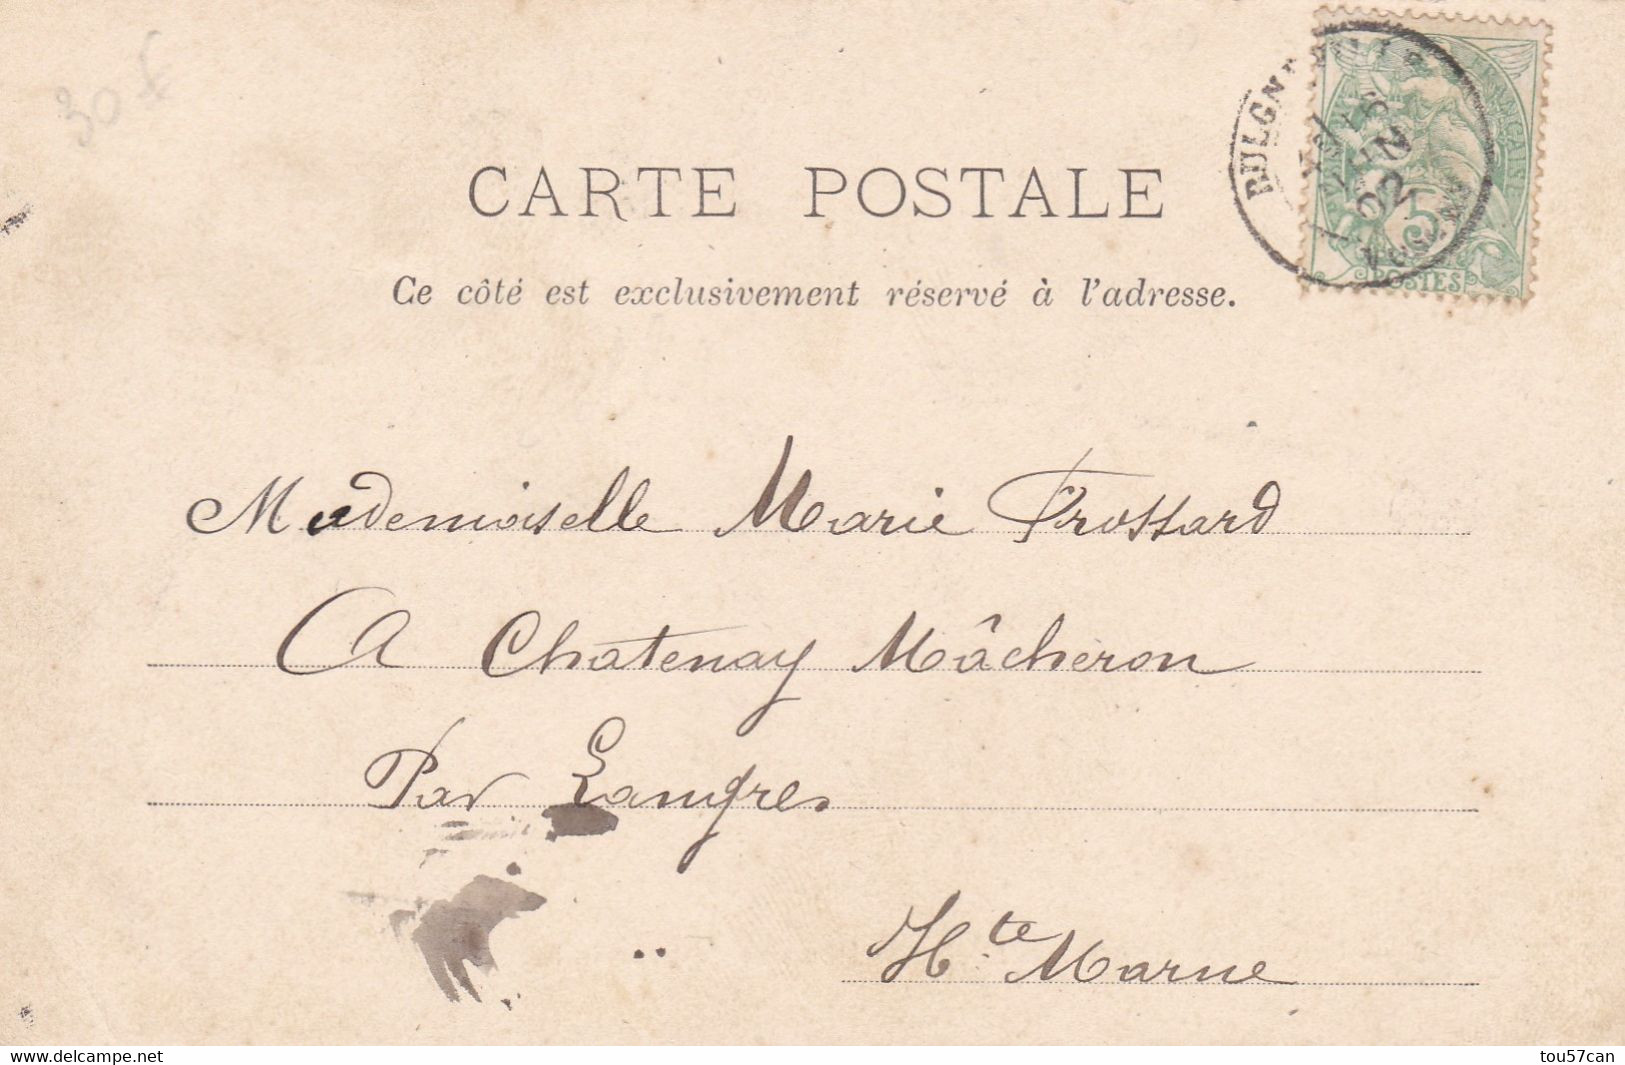 30 f
CARTE POSTALE
Ce côté est exclusivement réservé à l'adresse.
BULGNEVILLE
JUIN
02
VOSGES
5
POSTES
Mademoiselle Marie Frossard
A Chatenay Mâcheron
Par Langres
Hte Marne
www.delcampe.net
tou57can